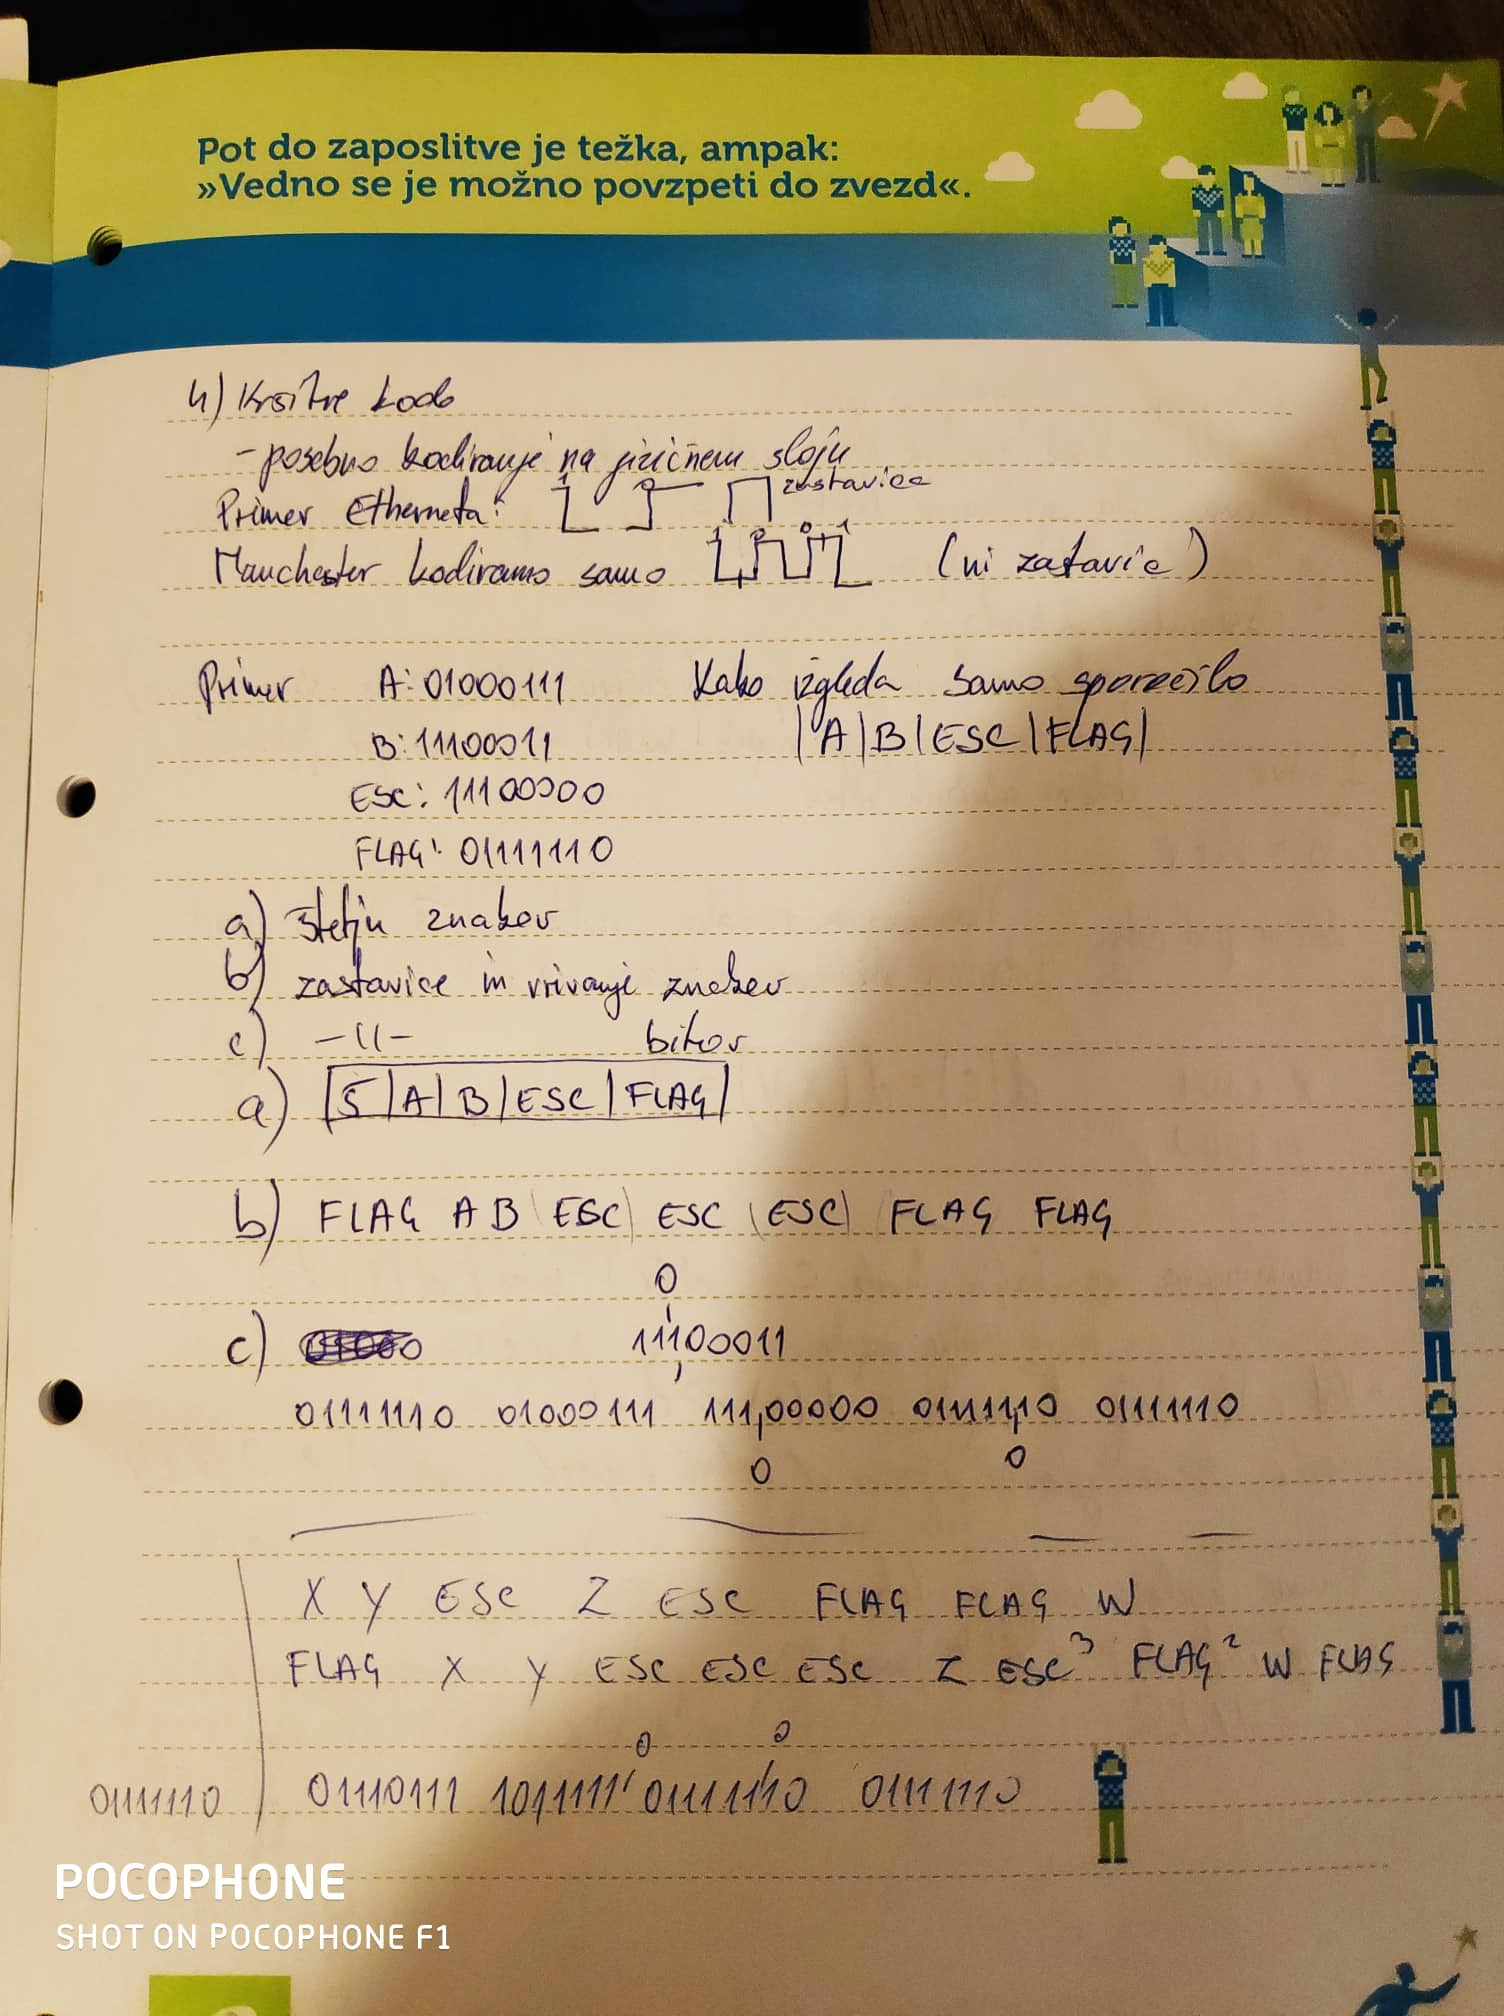 Pot do zaposlitve je težka, ampak:
»Vedno se je možno povzpeti do zvezd«.
4) Kršitve kode
- posebno kodiranje na fizičnem sloju
Primer Etherneta: 1 0 zastavice
Manchester kodiramo samo 1 0 0 1 (ni zastavic)
Primer A: 01000111 Kako izgleda samo sporočilo
B: 11100011 |A|B|ESC|FLAG|
ESC: 11100000
FLAG: 01111110
a) štetju znakov
b) zastavice in vrivanje znakov
c) -11- bitov
a) |5|A|B|ESC|FLAG|
b) FLAG A B |ESC| ESC |ESC| FLAG FLAG
0
c) 11100011
01111110 01000111 111,00000 0111110 01111110
0 0
X Y ESC Z ESC FLAG FLAG W
FLAG X Y ESC ESC ESC Z ESC³ FLAG² W FLAG
0 0
01111110 01110111 10111111 01111110 01111110
POCOPHONE
SHOT ON POCOPHONE F1